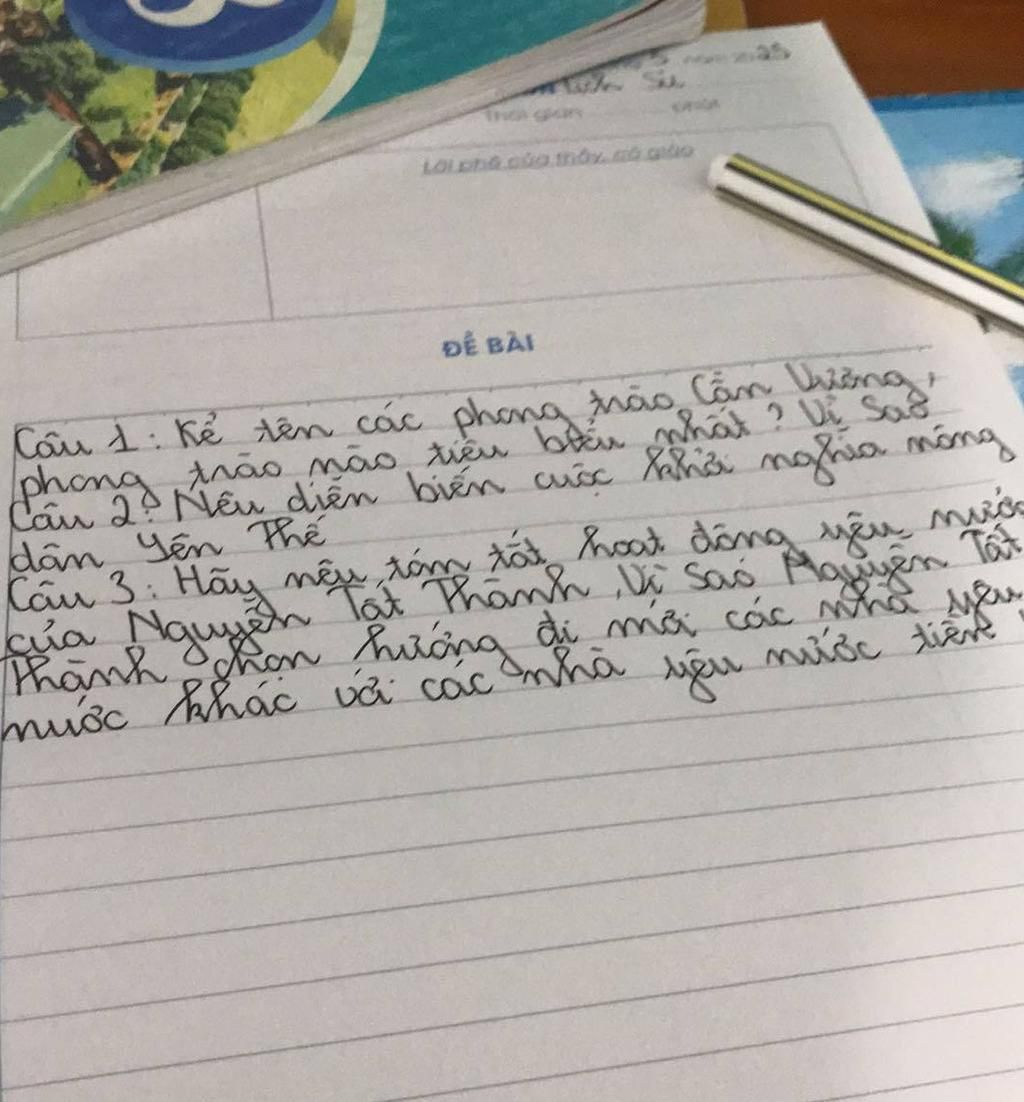 5 năm 2025
Sử
Thời gian phút
Lời phê của thầy, cô giáo
ĐỀ BÀI
Câu 1: Kể tên các phong trào Cần Vương,
phong trào nào tiêu biểu nhất? Vì sao
Câu 2: Nêu diễn biến cuộc khởi nghĩa nông
dân Yên Thế
Câu 3: Hãy nêu tóm tắt hoạt động yêu nước
của Nguyễn Tất Thành, Vì sao Nguyễn Tất
Thành chọn hướng đi mới các nhà yêu
nước khác với các nhà yêu nước tiền